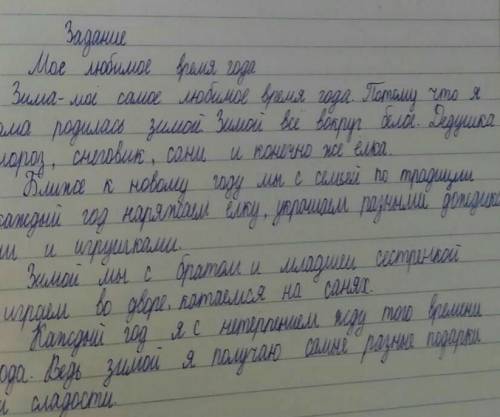 Задание
Мое любимое время года
Зима-моё самое любимое время года. Потому что я
ома родилась зимой Зимой всё вокруг белое. Дедушка
мороз, снеговик, сани и конечно же ёлка.
Ближе к новому году мы с семьёй по традиции
каждый год наряжаем ёлку, украшаем разными дождика
ми и игрушками.
Зимой мы с братом и младшей сестренкой
играем во дворе. катаемся на санях.
Каждый год я с нетерпением жду того времени
ода. Ведь зимой я получаю самые разные подарки
и сладости.